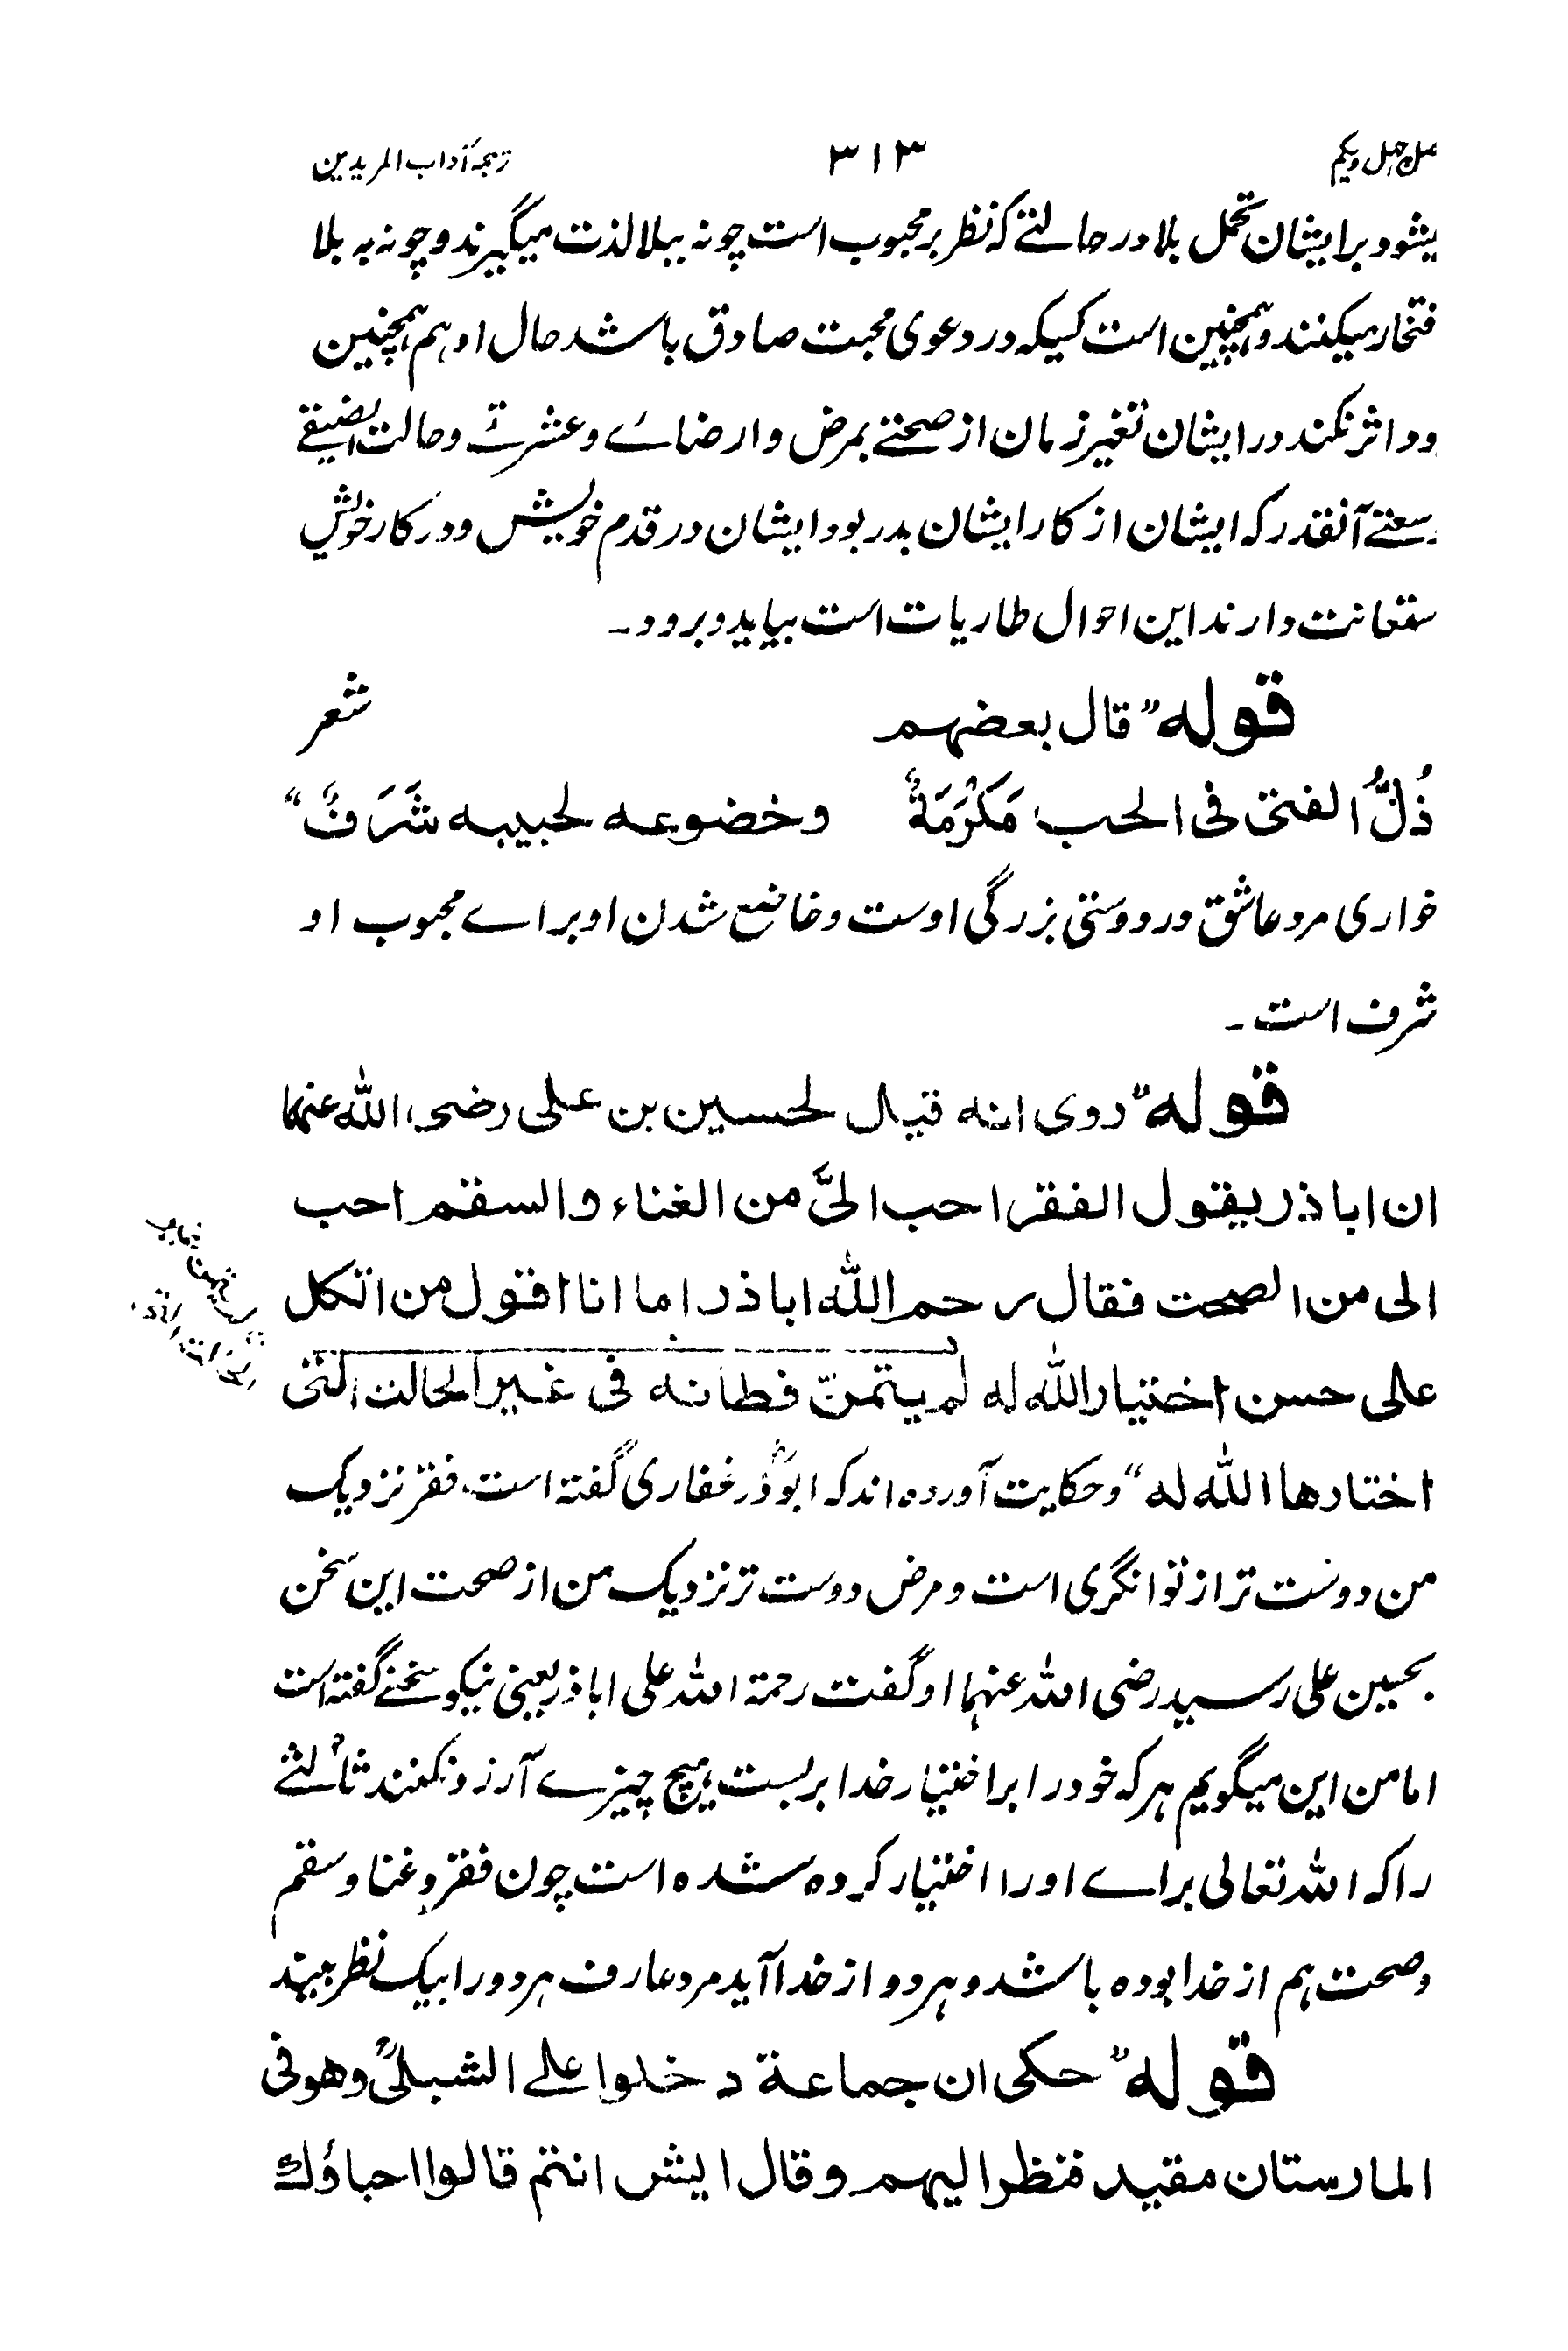 چهل ویکم ۳۱۳ ترجمهٔ آداب المریدین
یشود برایشان تحمل بلا در حالتے که نظر بر محبوب است چونه ببلا لذت میگیرند و چونه به بلا
فتخار میکنند و همچنین است کسیکه در دعوی محبت صادق باشد حال او هم همچنین
ود اثر نکند در ایشان تغیر زمان از صحتے بمرض و ار ضائے و عشرتے و حالت ضیقے
سعتے آنقدر که ایشان از کار ایشان بدر بود ایشان در قدم خویش و در کار خویش
ستقانت دارند این احوال طاریات است بیاید و برود۔
قوله ”قال بعضهم شعر
ذُلُّ الفتی فی الحب مَکْرَمَةٌ وخضوعه لحبیبه شَرَفٌ“
خواری مرد عاشق در دوستی بزرگی اوست و خاضع شدن او برائے محبوب او
شرف است۔
قوله ”روی انه قیل لحسین بن علی رضی الله عنهما
ان اباذر یقول الفقر احب الیَّ من الغناء والسقم احب
الی من الصحت فقال رحم الله اباذر اما انا اقول من اتکل
علی حسن اختیار الله له لم یتمن فطانه فی غیر الحالت التی
اختارها الله له“ و حکایت آورده اند که ابوذر غفاری گفته است فقر نزدیک
من دوست تر از توانگری است و مرض دوست تر نزدیک من از صحت این سخن
بحسین علی رسید رضی الله عنهما او گفت رحمة الله علی اباذر یعنی نیکو سخنے گفته است
اما من این میگویم هر که خود را بر اختیار خدا بر بست هیچ چیزے آرزو نکند ثالثے
را که الله تعالی برائے او را اختیار کرده شده است چون فقر و غنا و سقم
و صحت هم از خدا بوده باشد و هر دو از خدا آید مرد عارف هر دو را بیک نظر بیند
قوله ”حکی ان جماعة دخلوا علے الشبلیؒ وهو فی
المارستان مقید فنظر الیهم وقال ایش انتم قالوا احباؤك